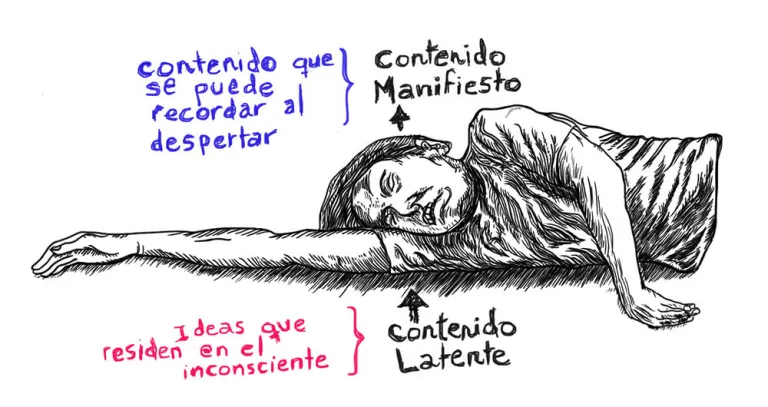 contenido que
se puede
recordar al
despertar
Contenido
Manifiesto
Ideas que
residen en el
inconsciente
Contenido
Latente